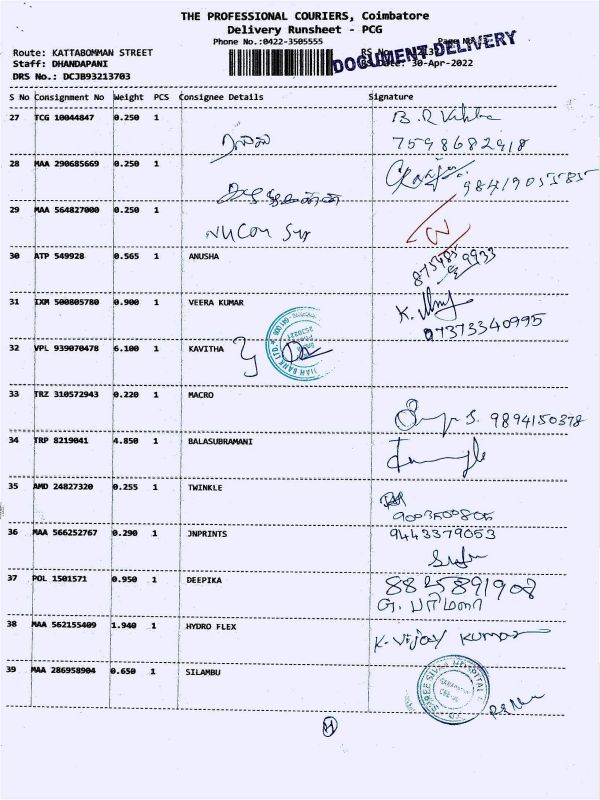 THE PROFESSIONAL COURIERS, Coimbatore
Delivery Runsheet - PCG
Phone No.:0422-3505555
DOCUMENT DELIVERY
Route: KATTABOMMAN STREET
Staff: DHANDAPANI 30-Apr-2022
DRS No.: DCJB93213703
S No Consignment No Weight PCS Consignee Details Signature
27 TCG 10044847 0.250 1
7598682918
28 MAA 290685669 0.250 1
98419055585
29 MAA 564827000 0.250 1
30 ATP 549928 0.565 1 ANUSHA
31 IXM 500805780 0.900 1 VEERA KUMAR
07373340995
32 VPL 939070478 6.100 1 KAVITHA
33 TRZ 310572943 0.220 1 MACRO
S. 9894150378
34 TRP 8219041 4.850 1 BALASUBRAMANI
35 AMD 24827320 0.255 1 TWINKLE
9003500805
36 MAA 566252767 0.290 1 JNPRINTS 9443379053
37 POL 1501571 0.950 1 DEEPIKA 8825891908
G. பரிமளா
38 MAA 562155409 1.940 1 HYDRO FLEX K. Vijay Kumar
39 MAA 286958904 0.650 1 SILAMBU